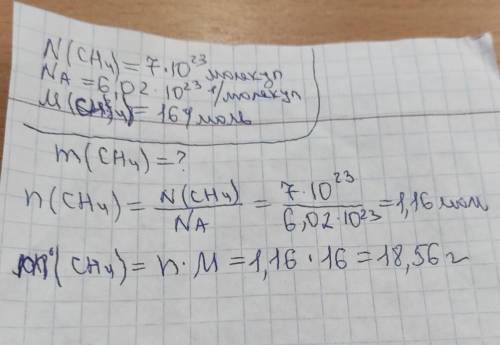 N(CH₄) = 7·10²³ молекул
NA = 6,02·10²³ 1/молекул
M(CH₄) = 16 г/моль
m(CH₄) = ?
n(CH₄) = N(CH₄)/NA = 7·10²³/6,02·10²³ = 1,16 мол
m(CH₄) = n·M = 1,16·16 = 18,56 г